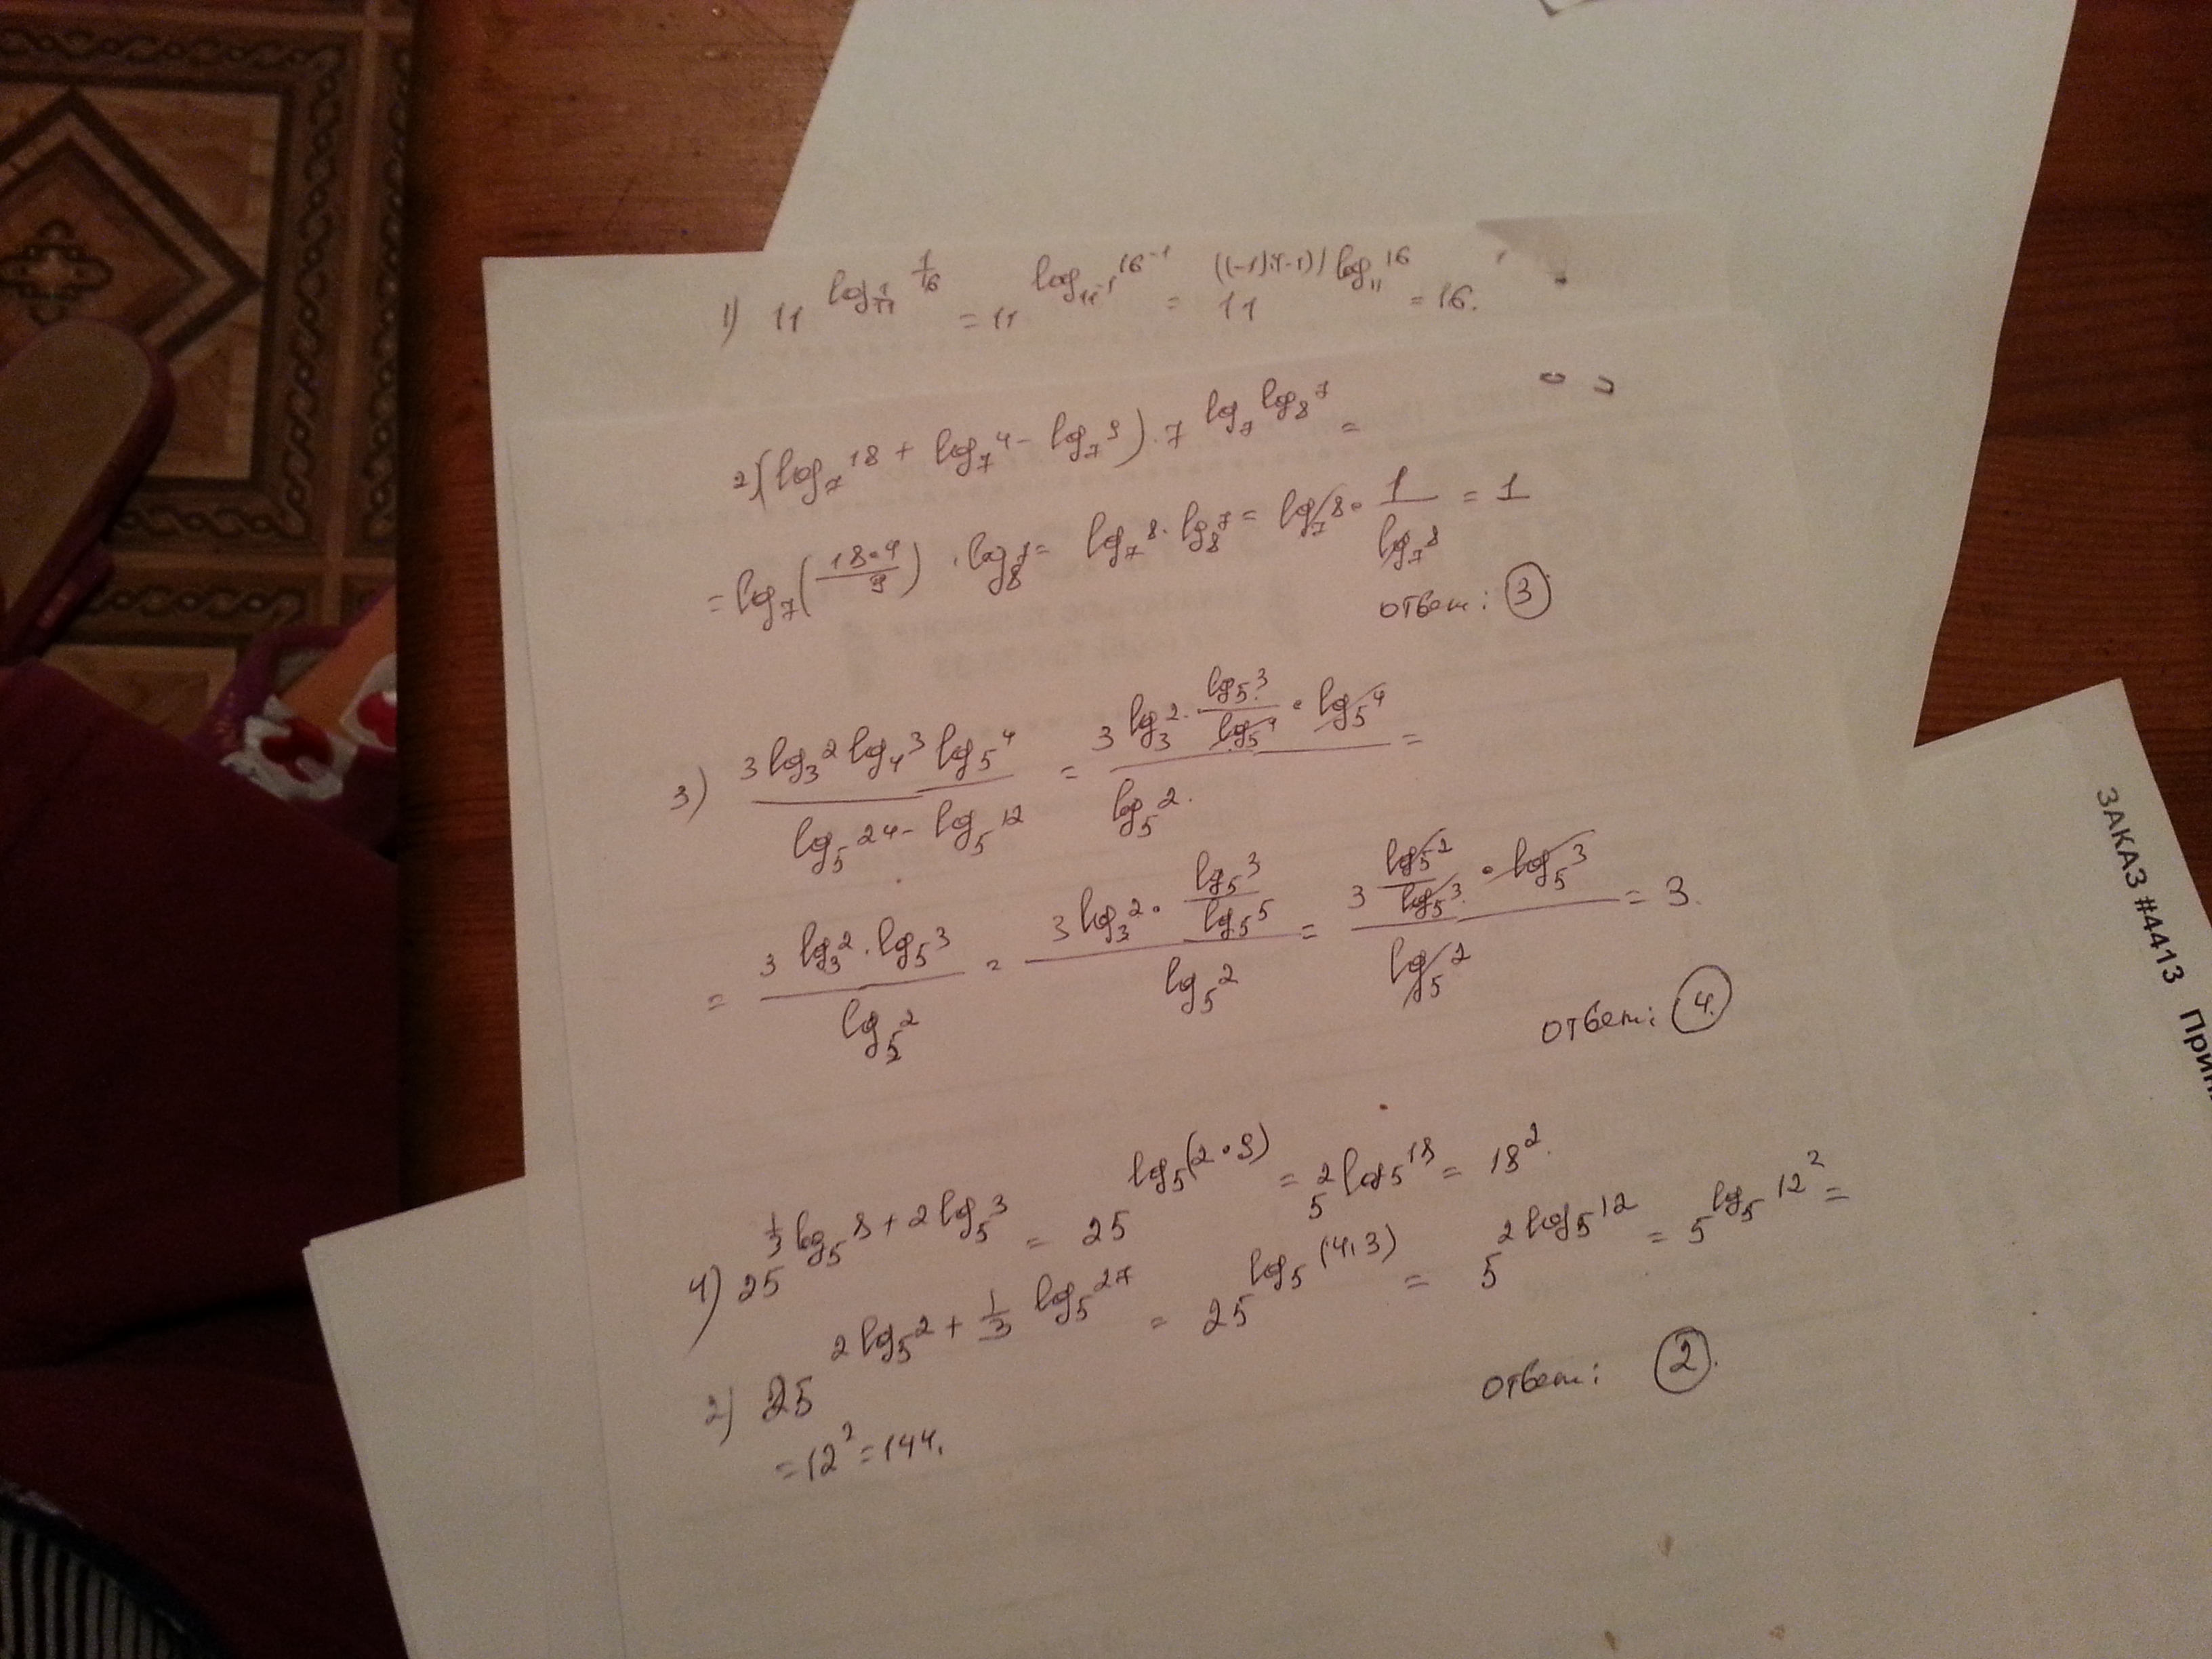 1) 11^(log_(1/11) 1/16) = 11^(log_(11^-1) 16^-1) = 11^(((-1):(-1)) log_11 16) = 16.
2) (log_7 18 + log_7 4 - log_7 9) · 7^(log_7 log_8 7) =
= log_7 (18·4/9) · log_8 7 = log_7 8 · log_8 7 = log_7 8 · 1/(log_7 8) = 1
ответ: 3
3) (3 log_3 2 log_4 3 log_5 4)/(log_5 24 - log_5 12) = (3 log_3 2 · (log_5 3)/(log_5 4) · log_5 4)/(log_5 2) =
= (3 log_3 2 · log_5 3)/(log_5 2) = (3 log_3 2 · (log_5 3)/(log_5 5))/(log_5 2) = (3 (log_5 2)/(log_5 3) · log_5 3)/(log_5 2) = 3.
ответ: 4.
4) 25^(1/3 log_5 8 + 2 log_5 3) = 25^(log_5 (2·9)) = 5^(2 log_5 18) = 18^2.
2) 25^(2 log_5 2 + 1/3 log_5 27) = 25^(log_5 (4·3)) = 5^(2 log_5 12) = 5^(log_5 12^2) =
= 12^2 = 144.
ответ: 2.
ЗАКАЗ #4413